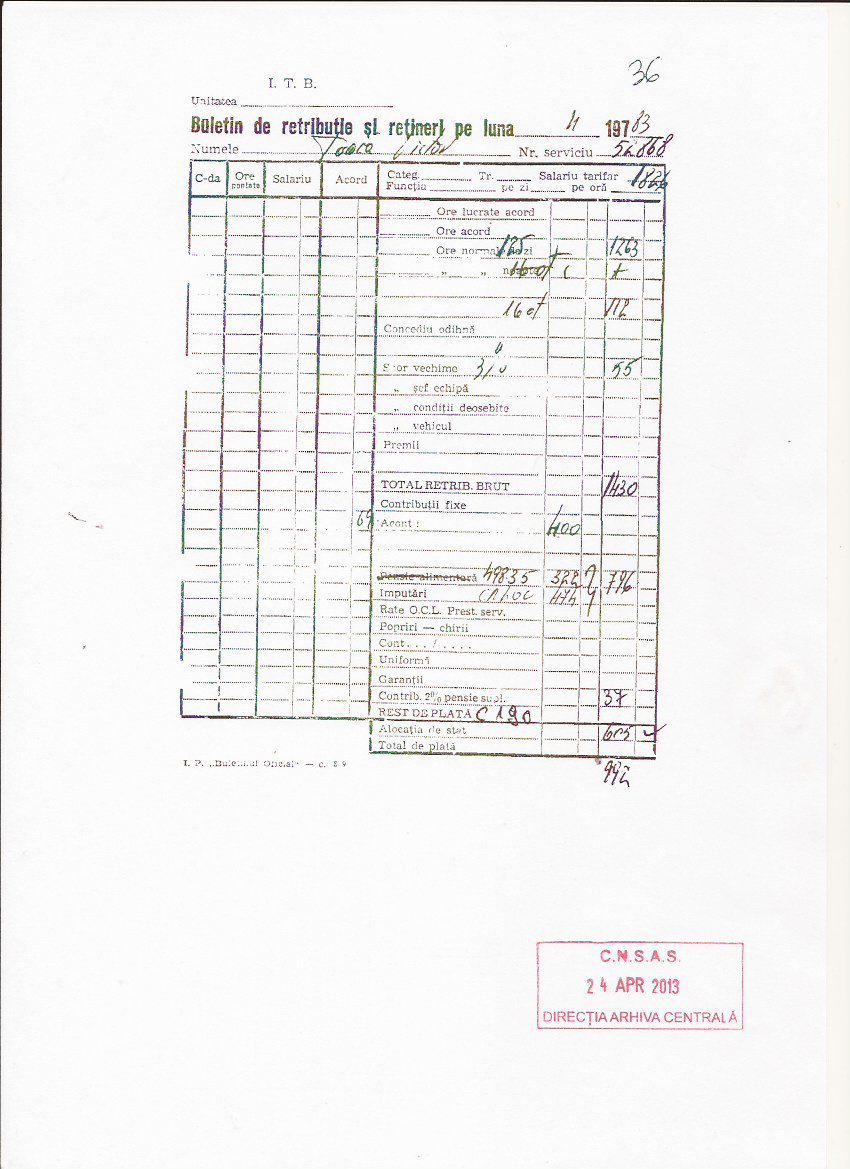 36
I. T. B.
Unitatea
Buletin de retribuție și rețineri pe luna 4 197 83
Numele Toara Victor Nr. serviciu 52868
C-da Ore pontate Salariu Acord Categ. Tr. Salariu tarifar 1826
Funcția pe zi pe oră
Ore lucrate acord
Ore acord
Ore normale zi 125 1263
„ „
16 of 112
Concediu odihnă
Spor vechime 3% 55
„ șef echipă
„ condiții deosebite
„ vehicul
Premii
TOTAL RETRIB. BRUT 1430
Contribuții fixe
69 Acont : 400
Pensie alimentară 49835 322 796
Imputări 474
Rate O.C.L. Prest. serv.
Popriri — chirii
Cont. . . / . . . .
Uniformă
Garanții
Contrib. 2% pensie supl. 37
REST DE PLATĂ
Alocația de stat 605
Total de plată
I. P. „Buletinul Oficial“ — c. 89
992
C.N.S.A.S.
24 APR 2013
DIRECȚIA ARHIVA CENTRALĂ